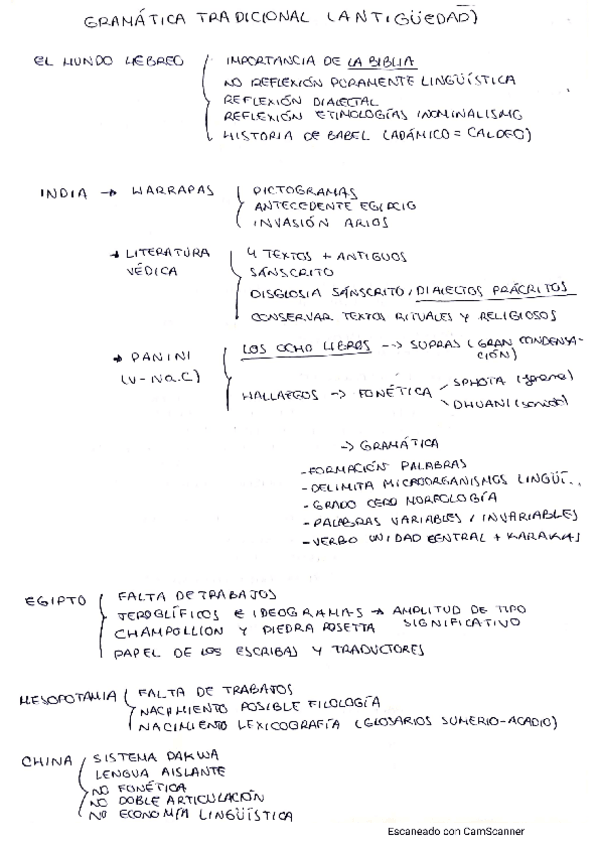 GRAMÁTICA TRADICIONAL (ANTIGÜEDAD)
EL MUNDO HEBREO
IMPORTANCIA DE LA BIBLIA
NO REFLEXIÓN PURAMENTE LINGÜÍSTICA
REFLEXIÓN DIALECTAL
REFLEXIÓN ETIMOLOGÍAS / NOMINALISMO
HISTORIA DE BABEL (ADÁMICO = CALDEO)
INDIA → HARRAPAS
PICTOGRAMAS
ANTECEDENTE EGIPCIO
INVASIÓN ARIOS
→ LITERATURA VÉDICA
4 TEXTOS + ANTIGUOS
SÁNSCRITO
DISGLOSIA SÁNSCRITO / DIALECTOS PRÁCRITOS
CONSERVAR TEXTOS RITUALES Y RELIGIOSOS
→ PANINI
(V-IV a.C)
LOS OCHO LIBROS --> SUPRAS (GRAN CONDENSA-
CIÓN)
HALLAZGOS -> FONÉTICA
SPHOTA
DHUANI (sonido)
-> GRAMÁTICA
- FORMACIÓN PALABRAS
- DELIMITA MICROORGANISMOS LINGÜÍ..
- GRADO CERO MORFOLOGÍA
- PALABRAS VARIABLES / INVARIABLES
- VERBO UNIDAD CENTRAL + KARAKAS
EGIPTO
FALTA DE TRABAJOS
JEROGLÍFICOS E IDEOGRAMAS → AMPLITUD DE TIPO
SIGNIFICATIVO
CHAMPOLLION Y PIEDRA ROSETTA
PAPEL DE LOS ESCRIBAS Y TRADUCTORES
MESOPOTAMIA
FALTA DE TRABAJOS
NACIMIENTO POSIBLE FILOLOGÍA
NACIMIENTO LEXICOGRAFÍA (GLOSARIOS SUMERIO-ACADIO)
CHINA
SISTEMA DAKWA
LENGUA AISLANTE
NO FONÉTICA
NO DOBLE ARTICULACIÓN
NO ECONOMÍA LINGÜÍSTICA
Escaneado con CamScanner